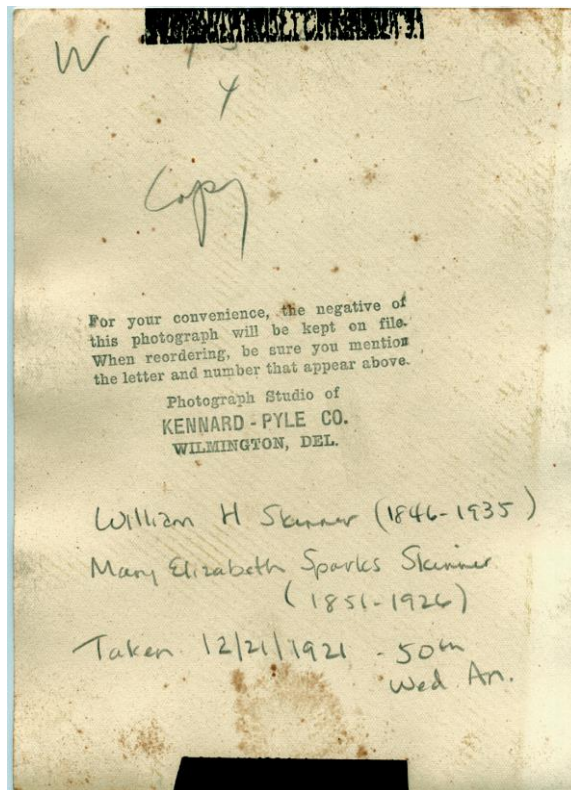 W
4
Copy
For your convenience, the negative of
this photograph will be kept on file.
When reordering, be sure you mention
the letter and number that appear above.
Photograph Studio of
KENNARD - PYLE CO.
WILMINGTON, DEL.
William H Skinner (1846-1935)
Mary Elizabeth Sparks Skinner
(1851-1926)
Taken 12/21/1921 - 50th
Wed An.